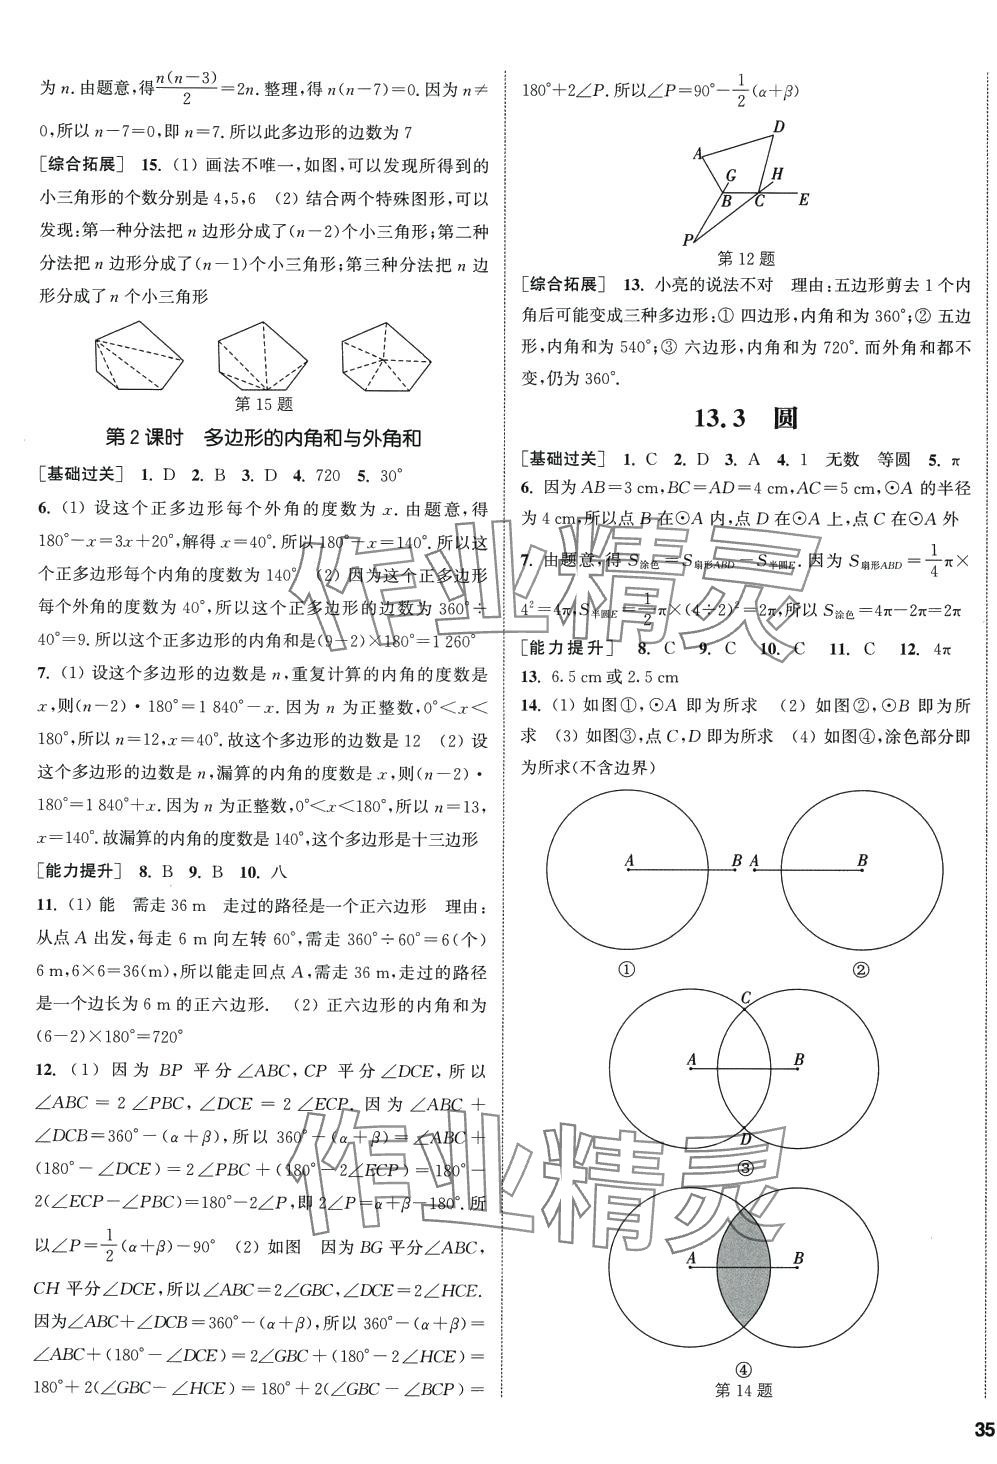 为 n. 由题意,得n(n-3)/2=2n. 整理,得 n(n-7)=0. 因为 n≠
0,所以 n-7=0,即 n=7. 所以此多边形的边数为 7
[综合拓展] 15. (1) 画法不唯一,如图,可以发现所得到的
小三角形的个数分别是 4,5,6 (2) 结合两个特殊图形,可以
发现:第一种分法把 n 边形分成了(n-2)个小三角形;第二种
分法把 n 边形分成了(n-1)个小三角形;第三种分法把 n 边
形分成了 n 个小三角形
第 15 题
第 2 课时 多边形的内角和与外角和
[基础过关] 1. D 2. B 3. D 4. 720 5. 30°
6. (1) 设这个正多边形每个外角的度数为 x. 由题意,得
180°-x=3x+20°,解得 x=40°. 所以 180°-x=140°. 所以这
个正多边形每个内角的度数为 140° (2) 因为这个正多边形
每个外角的度数为 40°,所以这个正多边形的边数为 360°÷
40°=9. 所以这个正多边形的内角和是(9-2)×180°=1 260°
7. (1) 设这个多边形的边数是 n,重复计算的内角的度数是
x,则(n-2)·180°=1 840°-x. 因为 n 为正整数,0°<x<
180°,所以 n=12,x=40°. 故这个多边形的边数是 12 (2) 设
这个多边形的边数是 n,漏算的内角的度数是 x,则(n-2)·
180°=1 840°+x. 因为 n 为正整数,0°<x<180°,所以 n=13,
x=140°. 故漏算的内角的度数是 140°,这个多边形是十三边形
[能力提升] 8. B 9. B 10. 八
11. (1) 能 需走 36 m 走过的路径是一个正六边形 理由:
从点 A 出发,每走 6 m 向左转 60°,需走 360°÷60°=6(个)
6 m,6×6=36(m),所以能走回点 A,需走 36 m,走过的路径
是一个边长为 6 m 的正六边形. (2) 正六边形的内角和为
(6-2)×180°=720°
12. (1) 因为 BP 平分∠ABC,CP 平分∠DCE,所以
∠ABC = 2∠PBC,∠DCE = 2∠ECP. 因为∠ABC +
∠DCB=360°-(α+β),所以 360°-(α+β)=∠ABC+
(180°-∠DCE)=2∠PBC+(180°-2∠ECP)=180°-
2(∠ECP-∠PBC)=180°-2∠P,即 2∠P=α+β-180°. 所
以∠P=1/2(α+β)-90° (2) 如图 因为 BG 平分∠ABC,
CH 平分∠DCE,所以∠ABC=2∠GBC,∠DCE=2∠HCE.
因为∠ABC+∠DCB=360°-(α+β),所以 360°-(α+β)=
∠ABC+(180°-∠DCE)=2∠GBC+(180°-2∠HCE)=
180°+2(∠GBC-∠HCE)=180°+2(∠GBC-∠BCP)=
180°+2∠P. 所以∠P=90°-1/2(α+β)
D
A
G
H
B
C
E
P
第 12 题
[综合拓展] 13. 小亮的说法不对 理由:五边形剪去 1 个内
角后可能变成三种多边形:① 四边形,内角和为 360°;② 五边
形,内角和为 540°;③ 六边形,内角和为 720°. 而外角和都不
变,仍为 360°.
13.3 圆
[基础过关] 1. C 2. D 3. A 4. 1 无数 等圆 5. π
6. 因为 AB=3 cm,BC=AD=4 cm,AC=5 cm,⊙A 的半径
为 4 cm,所以点 B 在⊙A 内,点 D 在⊙A 上,点 C 在⊙A 外
7. 由题意,得 S涂色=S扇形ABD-S半圆E. 因为 S扇形ABD=1/4π×
4²=4π,S半圆E=1/2π×(4÷2)²=2π,所以 S涂色=4π-2π=2π
[能力提升] 8. C 9. C 10. C 11. C 12. 4π
13. 6.5 cm 或 2.5 cm
14. (1) 如图①,⊙A 即为所求 (2) 如图②,⊙B 即为所
求 (3) 如图③,点 C,D 即为所求 (4) 如图④,涂色部分即
为所求(不含边界)
A B
A B
① ②
C
A B
D
③
A B
④
第 14 题
35
作业精灵
作业精灵